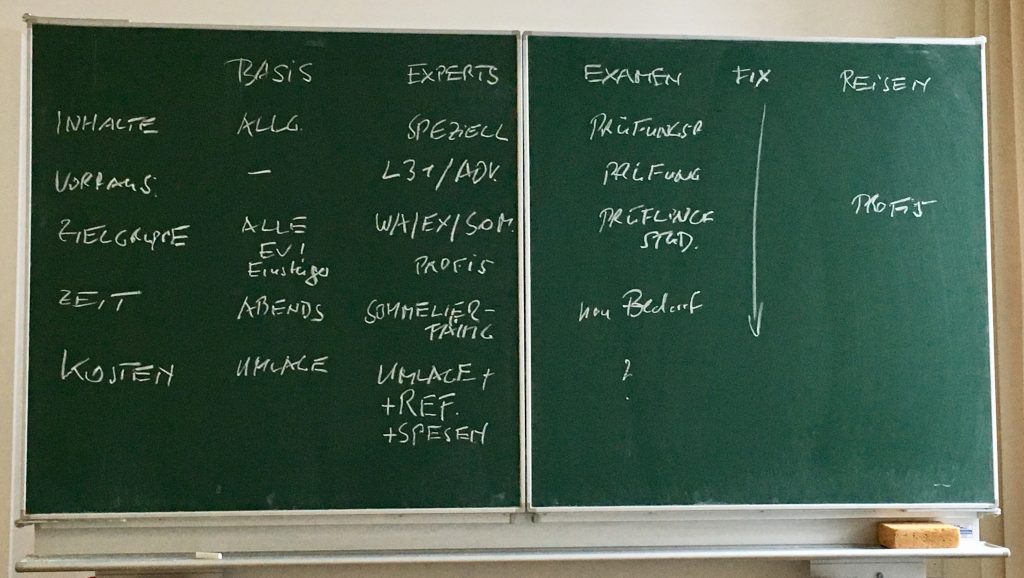 BASIS EXPERTS EXAMEN FIX REISEN
INHALTE ALLG. SPEZIELL PRÜFUNGSR
VORRAUS. — L3+/ADV. PRÜFUNG
ZIELGRUPPE ALLE WA/EX/SOM. PRÜFLINGE PROFIS
EV! PROFIS STUD.
Einsteiger
ZEIT ABENDS SOMMELIER- nau Bedarf
FÄHIG
KOSTEN UMLAGE UMLAGE + ?
+REF.
+SPESEN